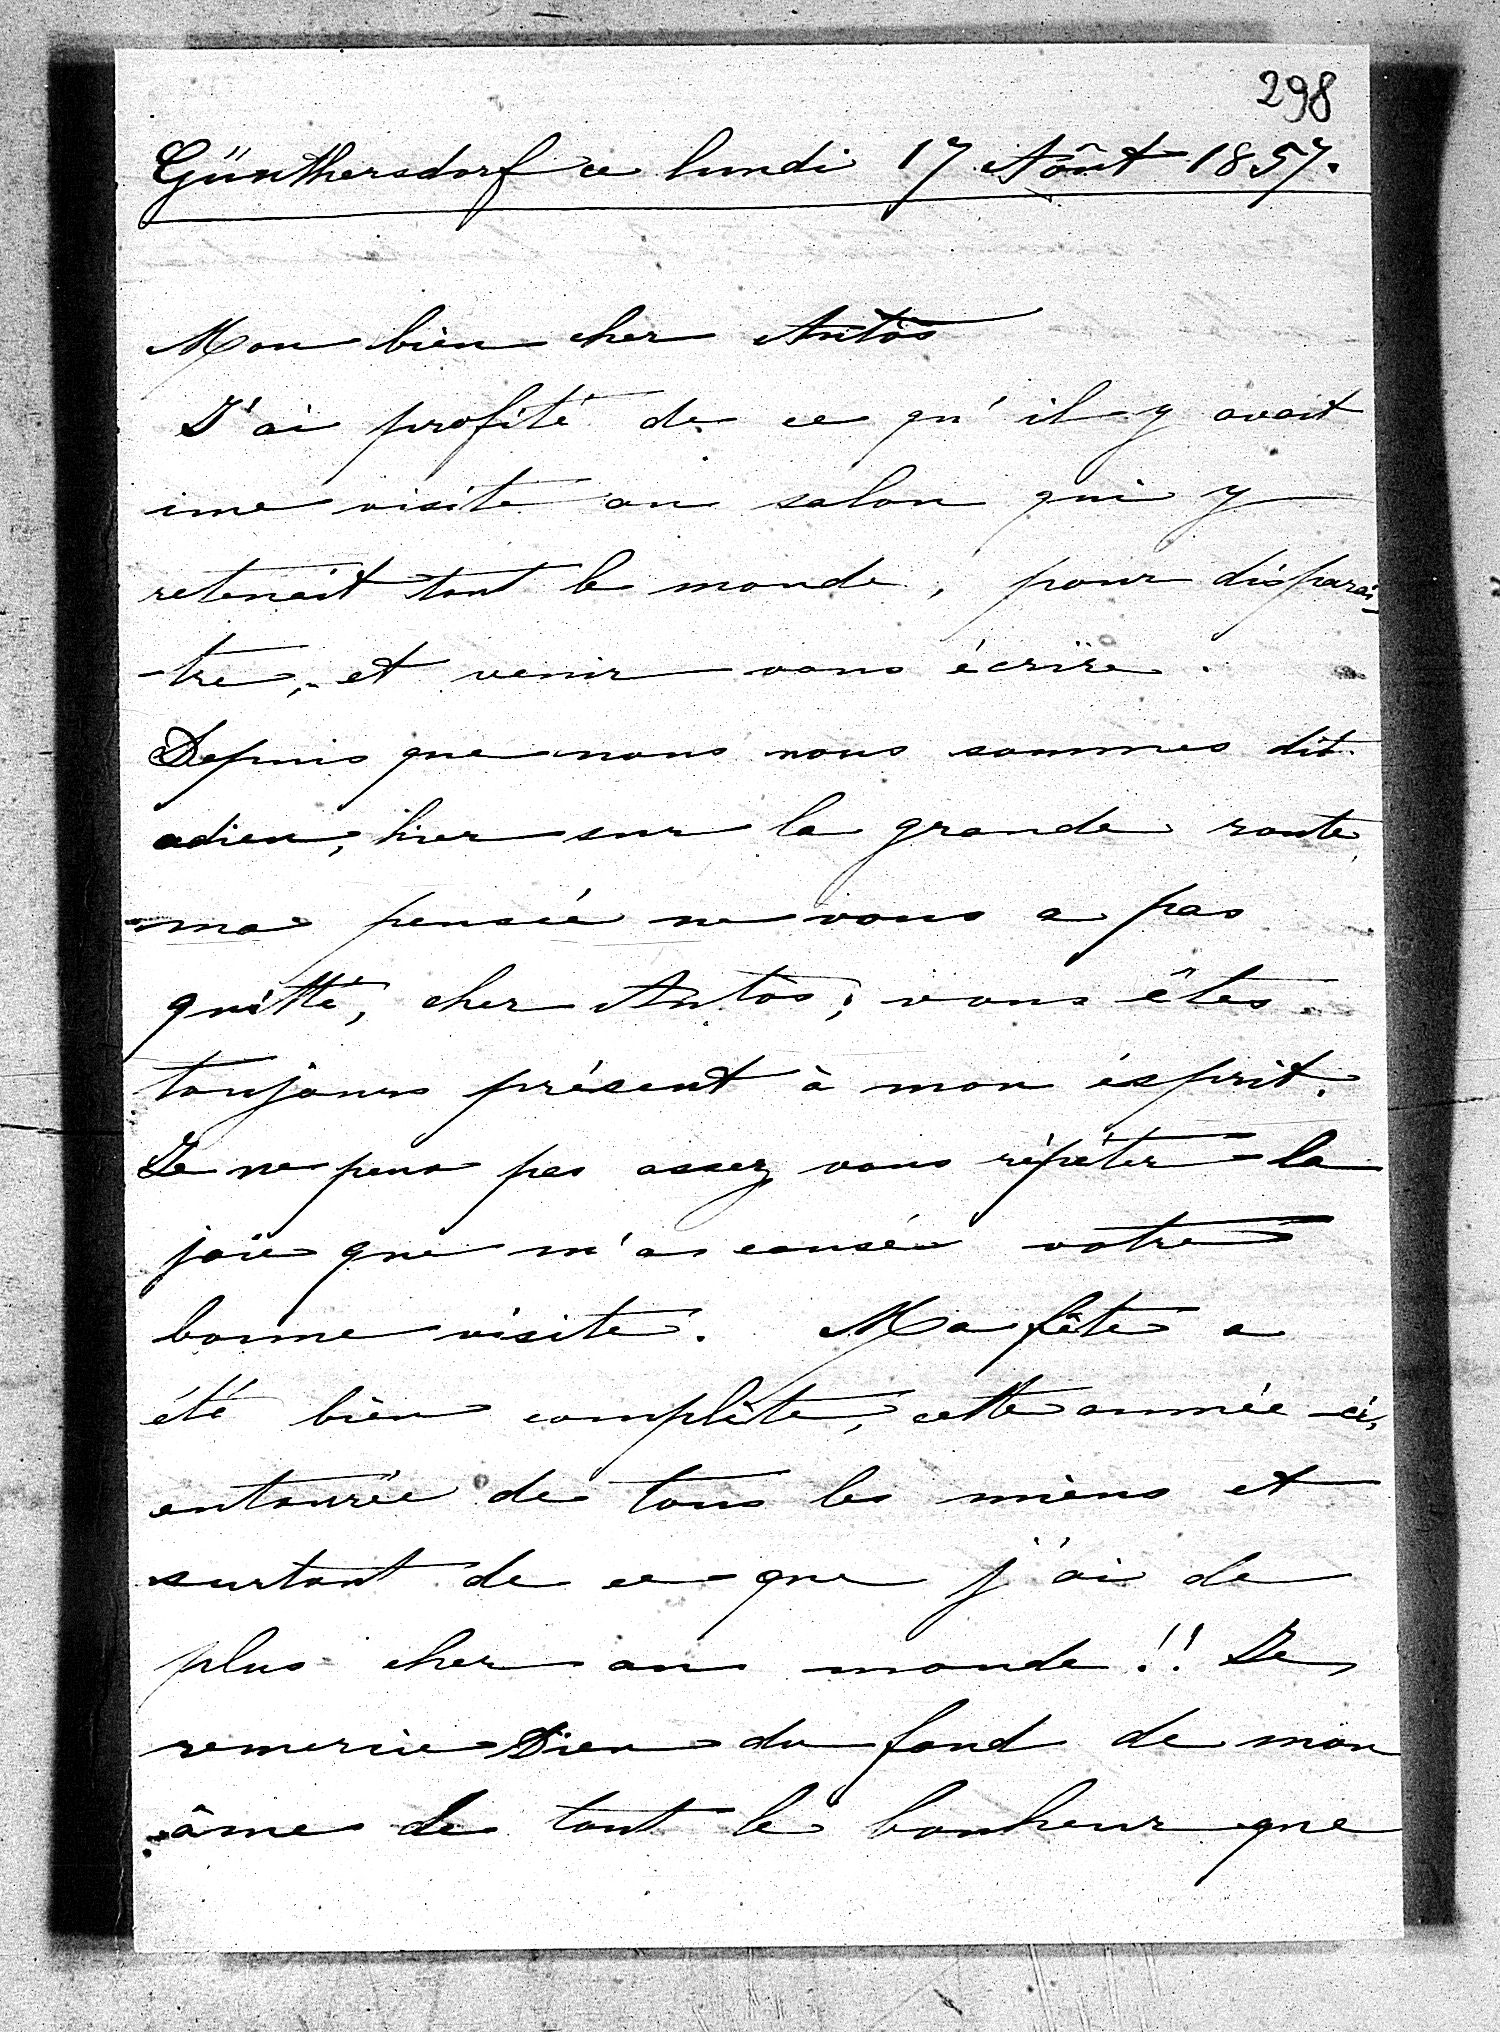 298
Günthersdorf ce lundi 17 Aôut 1857.
Mon bien cher Antòs
J'ai profité de ce qu'il y avait
une visite au salon qui y
retenait tout le monde, pour disparaî-
-tre, et venir vous écrire.
Depuis que nous nous sommes dit
adieu, hier sur la grande route,
ma pensée ne vous a pas
quitté, cher Antòs; vous êtes
toujours présent à mon ésprit.
Je ne peux pas assez vous répéter la
joie que m'a causée votre
bonne visite. Ma fête a
été bien complète, cette année-ci,
entourée de tous les miens et
surtout de ce que j'ai de
plus cher au monde!! Je
remercie Dieu du fond de mon
âme de tout le bonheur que